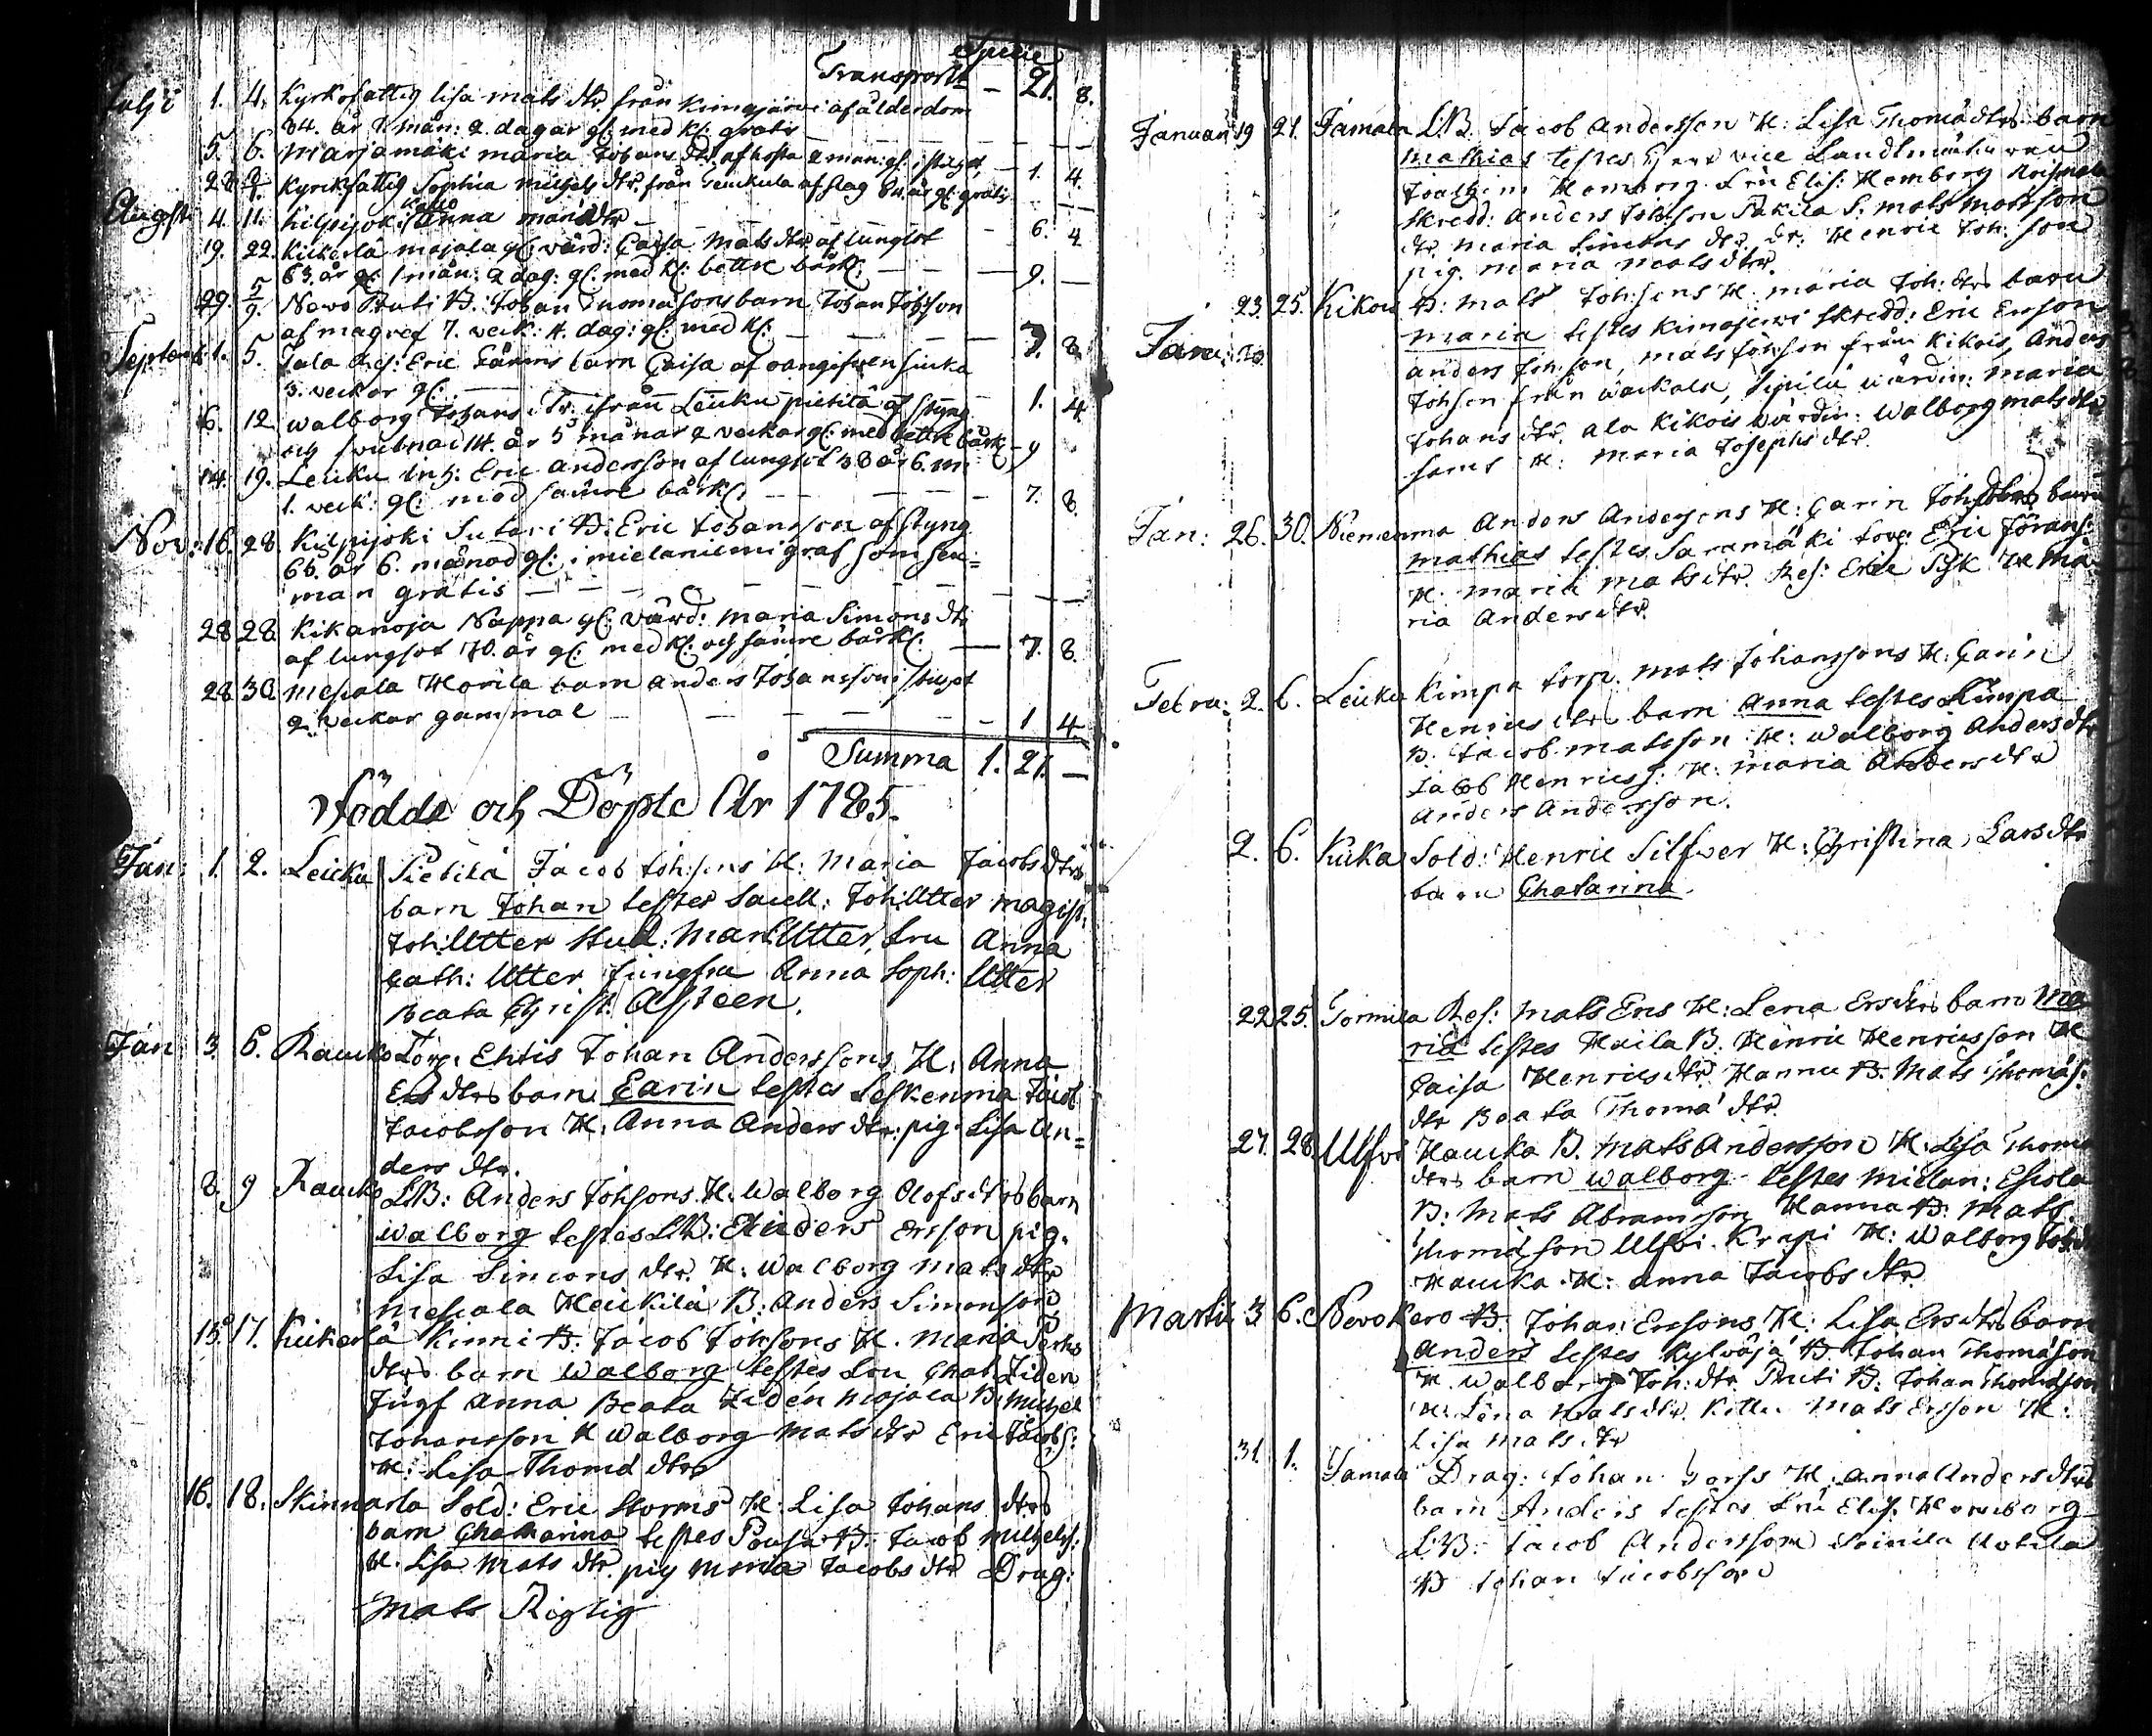 Specie
Transport – 21. 8.
Julji 1. 4. Kyrkofattig Lisa Mats dtr från Kimojärvi af ålderdom
84. år 2. mån: 2. dagar gl: med Kl: gratis
5. 6. Marjamäki Maria Johans dtr af hosta 2 mån: gl. – 1. 4.
28. Kyrkfattig Sophia Michels dtr från af slag gl: gratis
Augst: 4. 11. Kilpijoki Anna dtr – 6. 4
19. 22. Kiikerlä Mojala gl: vård: Caisa Mats dtr af lungsot
63. år 1 mån: 2 dag: gl: med Kl: bettre bårkl: – 9. –
29. 5/9. Nevo Pruti B. Johan Thomasons barn Johan Johsson
af magref 7. veck: 4. dag: gl: med Kl: – 7. 8.
Septemb: 1. 5. Jala Res: Eric barn Caisa af oangifwen siuka
3. veckor gl: – 1. 4
6. 12. Walborg Johans dtr. ifrån Leicku Pietilä af styng
och 14. år 5 månar 2 veckor gl: med bettre bårk – 9
14. 19. Leicku Inh: Eric Andersson af lungsot 38 år 6. m:
1. veck: gl: med sämre bårkl: – 7. 8.
Nov: 16. 28. Kilpijoki Sutari B: Eric Johansson af styng
66. år 6. månad gl: i mielanilmi graf som
man gratis –
28 28. Kikanoja Nappa gl: Värd: Maria Simons dtr
af lungsot 70. år gl: med Kl: och sämre bårkl: – 7. 8.
28 30. Mesiala Horila barn Anders Johansson
2. veckor gammal – 1 4.
Summa 1. 21. –
Födde och Döpte Åhr 1785.
Jan: 1. 2. Leicku Pietilä Jacob Johsons H: Maria Jacobs dtrs
barn Johan testes Sacell: Joh: Utter Magist:
Joh: Utter Stud: Mart: Utter, Fru Anna
Cath: Utter Jungfru Anna Soph: Utter
Beata Christ: Alsteen.
Jan 3. 6. Raucko Torp: Ehtis Johan Anderssons H: Anna
Ers dtrs barn Carin testes Leskenma Jacob
Jacobsson H: Anna Anders dtr: pig: Lisa An=
ders dtr.
8. 9 Raucko LB: Anders Johsons H: Walborg Olofs dtrs barn
Walborg testes LB: Anders Ersson pig.
Lisa Simons dtr. H: Walborg Mats dtr
Mesiala Heickilä B: Anders Simonson
15. 17. Kiikerlä Kinni B. Jacob Johsons H. Maria
dtrs barn Walborg testes Fru Chat: Liden
Jugf Anna Beata Lidén Mojala B: Michel
Johansson H Walborg Mats dtr Eric Jacobs:
H: Lisa Thomä dtr
16. 18. Skinnarla Sold: Eric Storms H: Lisa Johans dtrs
barn Chatharina testes Pousa B. Jacob Michels:
H. Lisa Mats dtr. pig Maria Jacobs dtr Drag:
Mats Rigtig
Januari 19 21. Jamala LB. Jacob Andersson H: Lisa Thomä dtrs barn
Mathias testes vice Landtmätaren
Joachim Homborg Fru Elis: Homborg
Skredd: Anders Johsson Pakila S: Mats Matsson
dtr Maria Simons dtr. dr: Henric Joh: son
pig. Maria Mats dtr.
23. 25. Kikois B: Mats Joh:sons H: Maria Joh: dtrs barn
Janu: 20. Maria testes Kimojerwi Skredd: Eric Ersson
Anders Joh:son, Mats Johson från Kikois, Anders
Johson från Wackala, Sipilä Wärdin: Maria
Johans dtr. Ala Kikois Wärdin: Walborg Mats dtr
H: Maria Josephs dtr.
Jan: 26. 30. Niemenma Anders Andersons H: Carin Joh: dtrs barn
Mathias testes Saramäki torp: Eric Jörans:
H: Maria Mats dtr. Res: Eric Pisk H Ma
ria Anders dtr.
Febru: 2. 6. Leicku Kimpa torp. Mats Johanssons H: Carin
Henrics dtrs barn Anna testes Kimpa
B: Jacob Matsson H: Walborg Anders dtr
Jacob Henrics: H: Maria Anders dtr
Anders Andersson.
2. 6. Kiika Sold: Henric Silfwer H: Christina Lars dtr
barn Chatarina.
22 25. Tormila Res: Mats Ers H: Lena Ers dtrs barn Ma
ria testes Heila B: Henric Henricsson H
Caisa Henrics dtr. Hannu B. Mats Thomäs:
dtr Beata Thomä dtr.
27. 28. Ulfvi Haucka B. Mats Andersson H. Lisa Thomä
dtrs barn Walborg testes Mielan: Eskola
B: Mats Abramsson Hannu B: Mats
Thomäson Ulfvi Krapi H: Walborg Joh: d
Haucka H: Anna Jacobs dtr
Martii 3 6. Nevo Kero B: Johan Erssons H: Lisa Ers dtrs barn
Anders testes Kylvöjä B Johan Thomäson
H. Walborg Joh: dtr. Pruti B: Johan Thomäson
H: Lena Mats dtr. Mats Ersson H:
Lisa Mats dtr
31. 1. Jamala Drag: Johan Torss H: Anna Anders dtrs
barn Anders testes Fru Elis. Homborg
LB: Jacob Andersson Uotila
B Johan Jacobsson